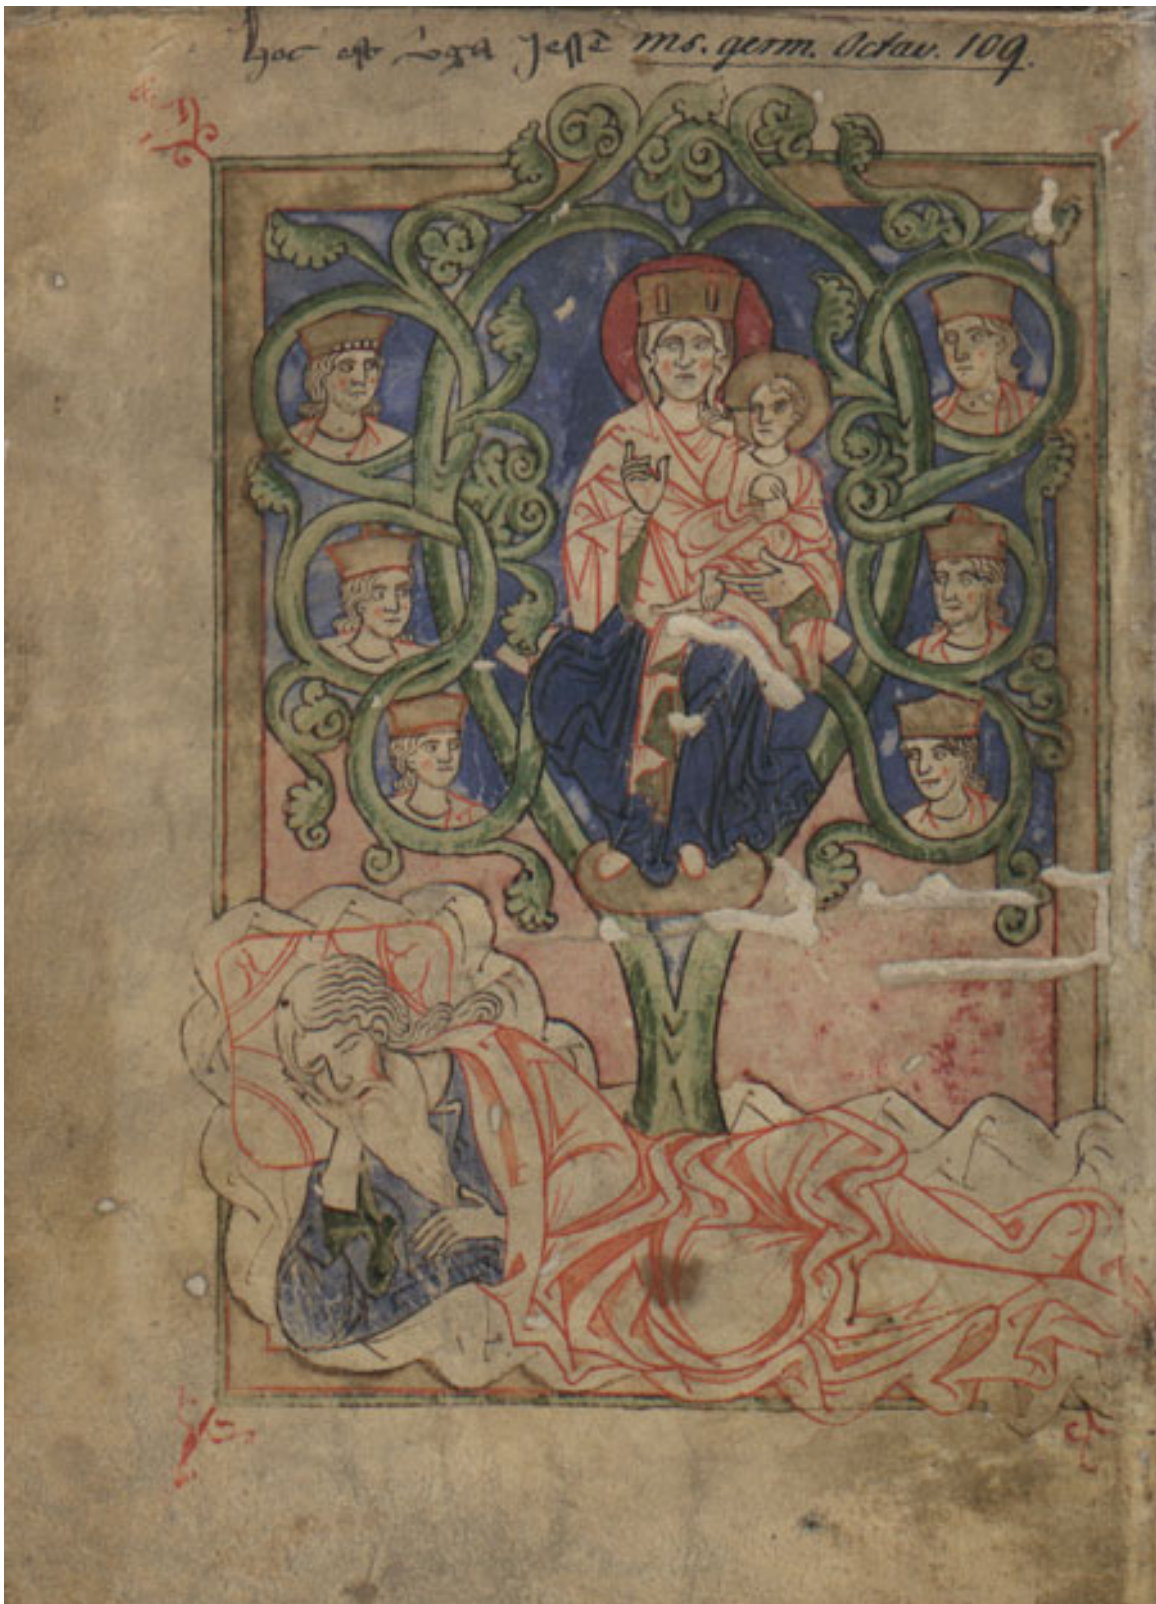 hoc est v̓ga Jesse ms. germ. Octav. 109.